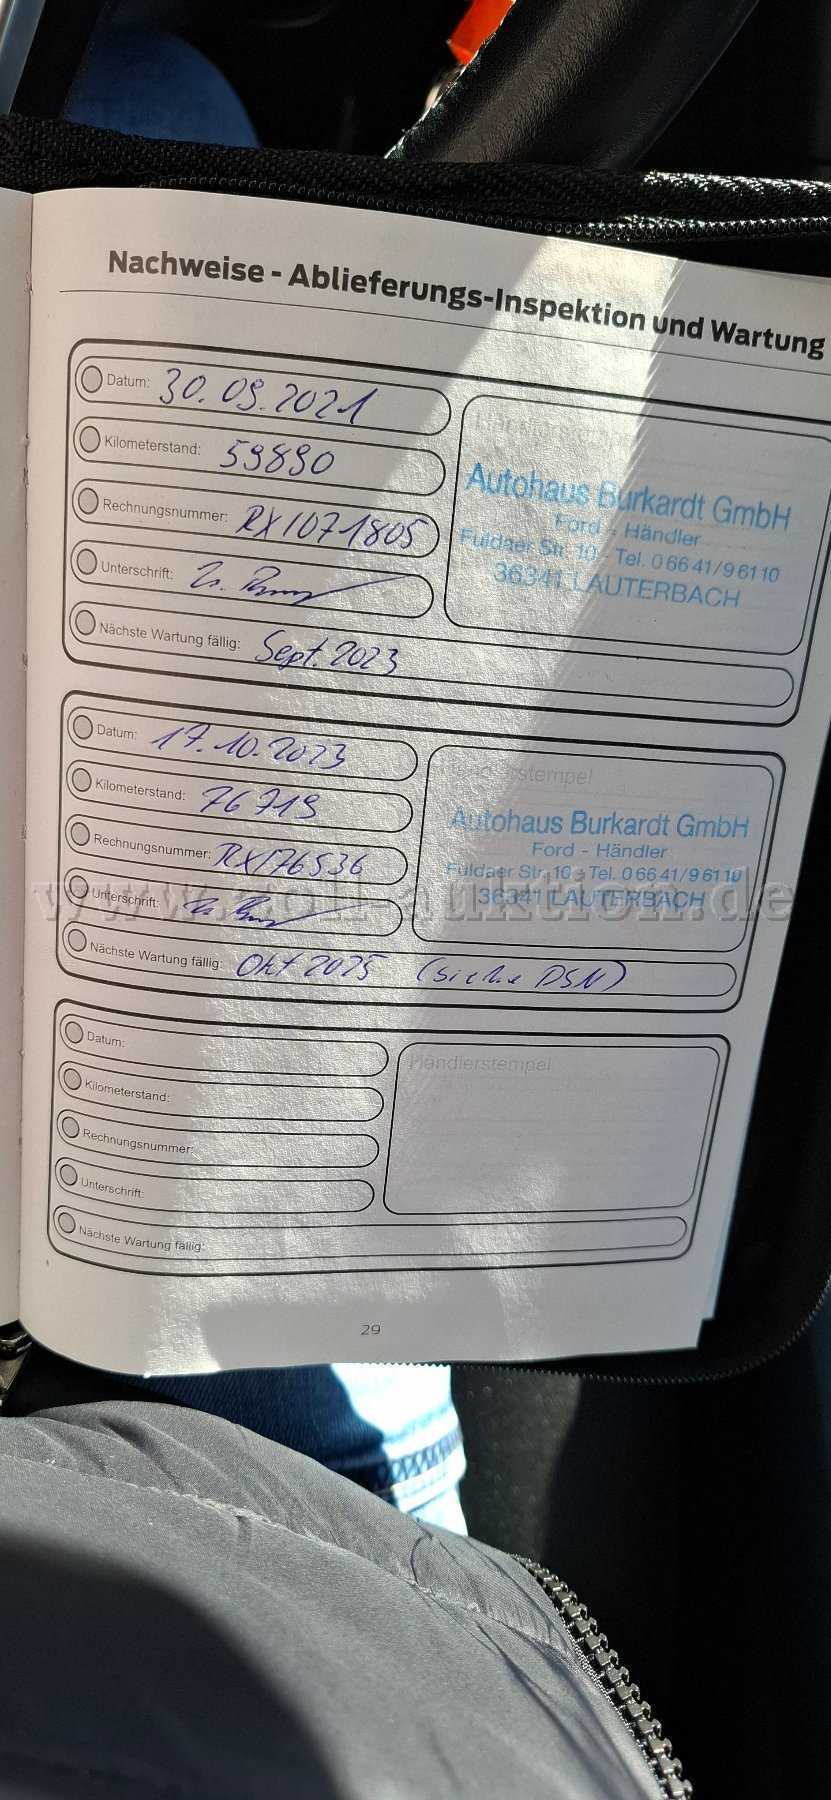 Nachweise - Ablieferungs-Inspektion und Wartung
Datum: 30.09.2021
Kilometerstand: 59890
Rechnungsnummer: RX1071805
Unterschrift:
Nächste Wartung fällig: Sept. 2023
Händlerstempel
Autohaus Burkardt GmbH
Ford - Händler
Fuldaer Str. 10 - Tel. 0 66 41/9 61 10
36341 LAUTERBACH
Datum: 17.10.2023
Kilometerstand: 76719
Rechnungsnummer: RX176536
Unterschrift:
Nächste Wartung fällig: Okt 2025 (siehe DSN)
Händlerstempel
Autohaus Burkardt GmbH
Ford - Händler
Fuldaer Str. 10 - Tel. 0 66 41/9 61 10
36341 LAUTERBACH
www.zoll-auktion.de
Datum:
Kilometerstand:
Rechnungsnummer:
Unterschrift:
Nächste Wartung fällig:
Händlerstempel
29